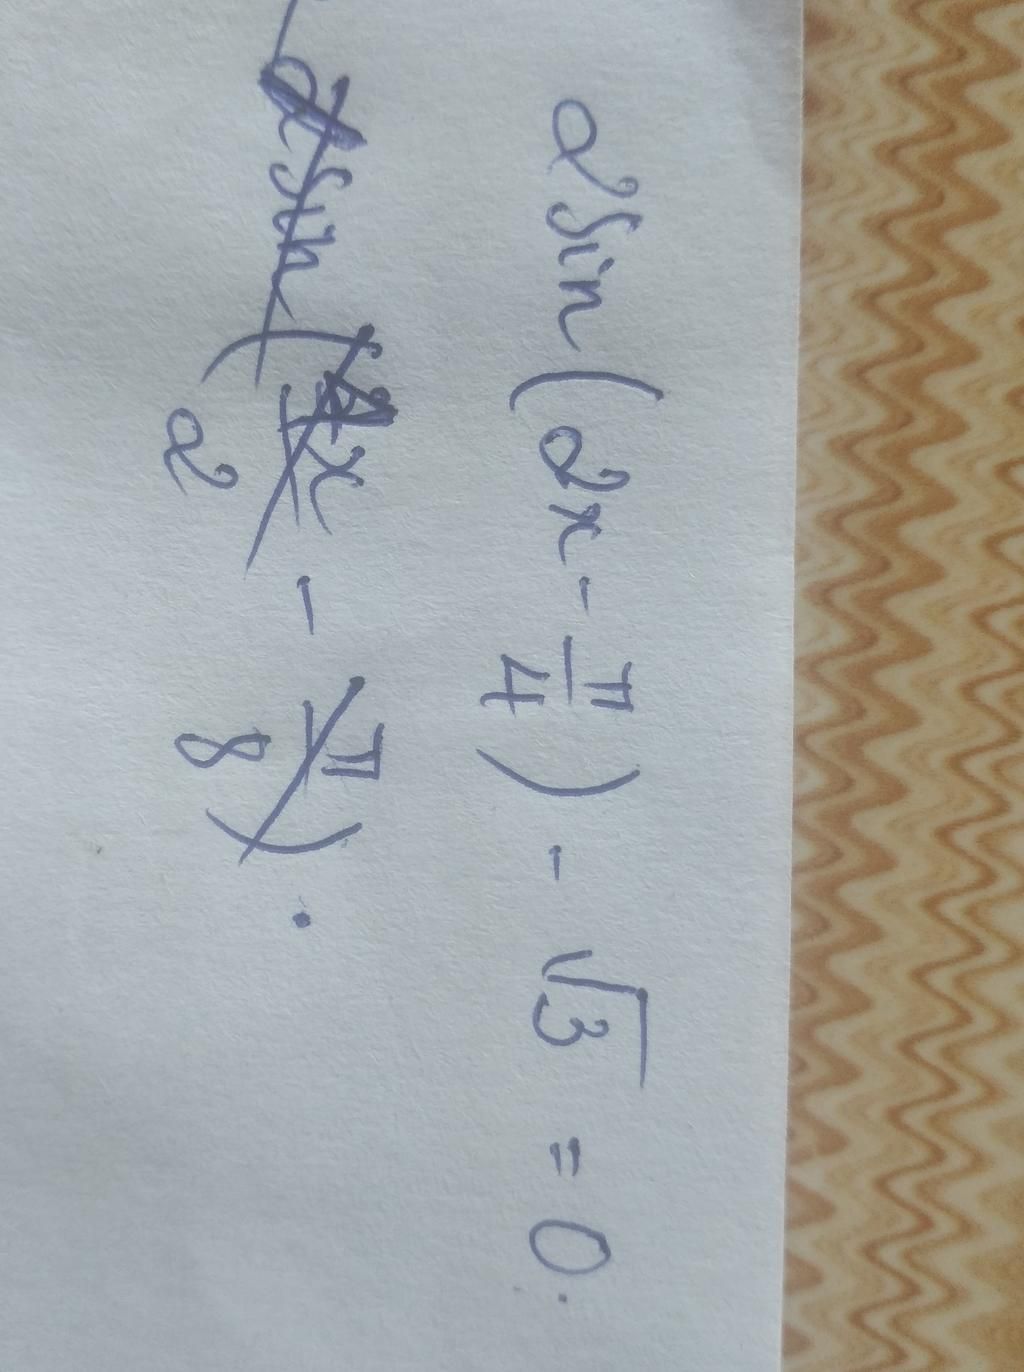 2sin(2x - π/4) - √3 = 0.
2sin(x/2 - π/8).